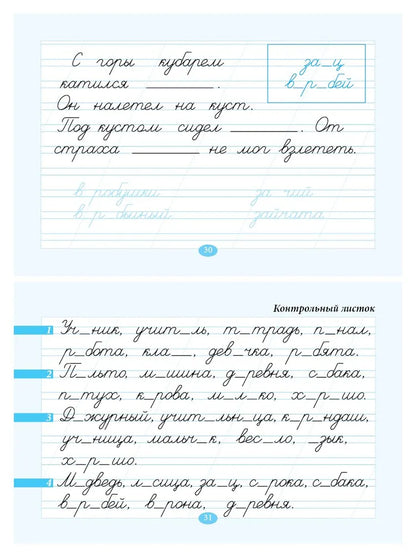 С горы кубарем
катился ______.
Он налетел на куст.
Под кустом сидел ______. От
страха ______ не мог взлететь.
за_ц
в_р_бей
в робушки за чий
в р бьиный зайчата
30
Контрольный листок
1 Уч_ник, учит_ль, т_традь, п_нал,
р_бота, кла__, дев_чка, р_бята.
2 П_льто, м_шина, д_ревня, с_бака,
п_тух, к_рова, м_л_ко, х_р_шо.
3 Д_журный, учит_льн_ца, к_р_ндаш,
уч_ница, мальч_к, вес_ло, _зык,
х_р_шо.
4 М_дведь, л_сица, за_ц, с_рока, с_бака,
в_р_бей, в_рона, д_ревня.
31